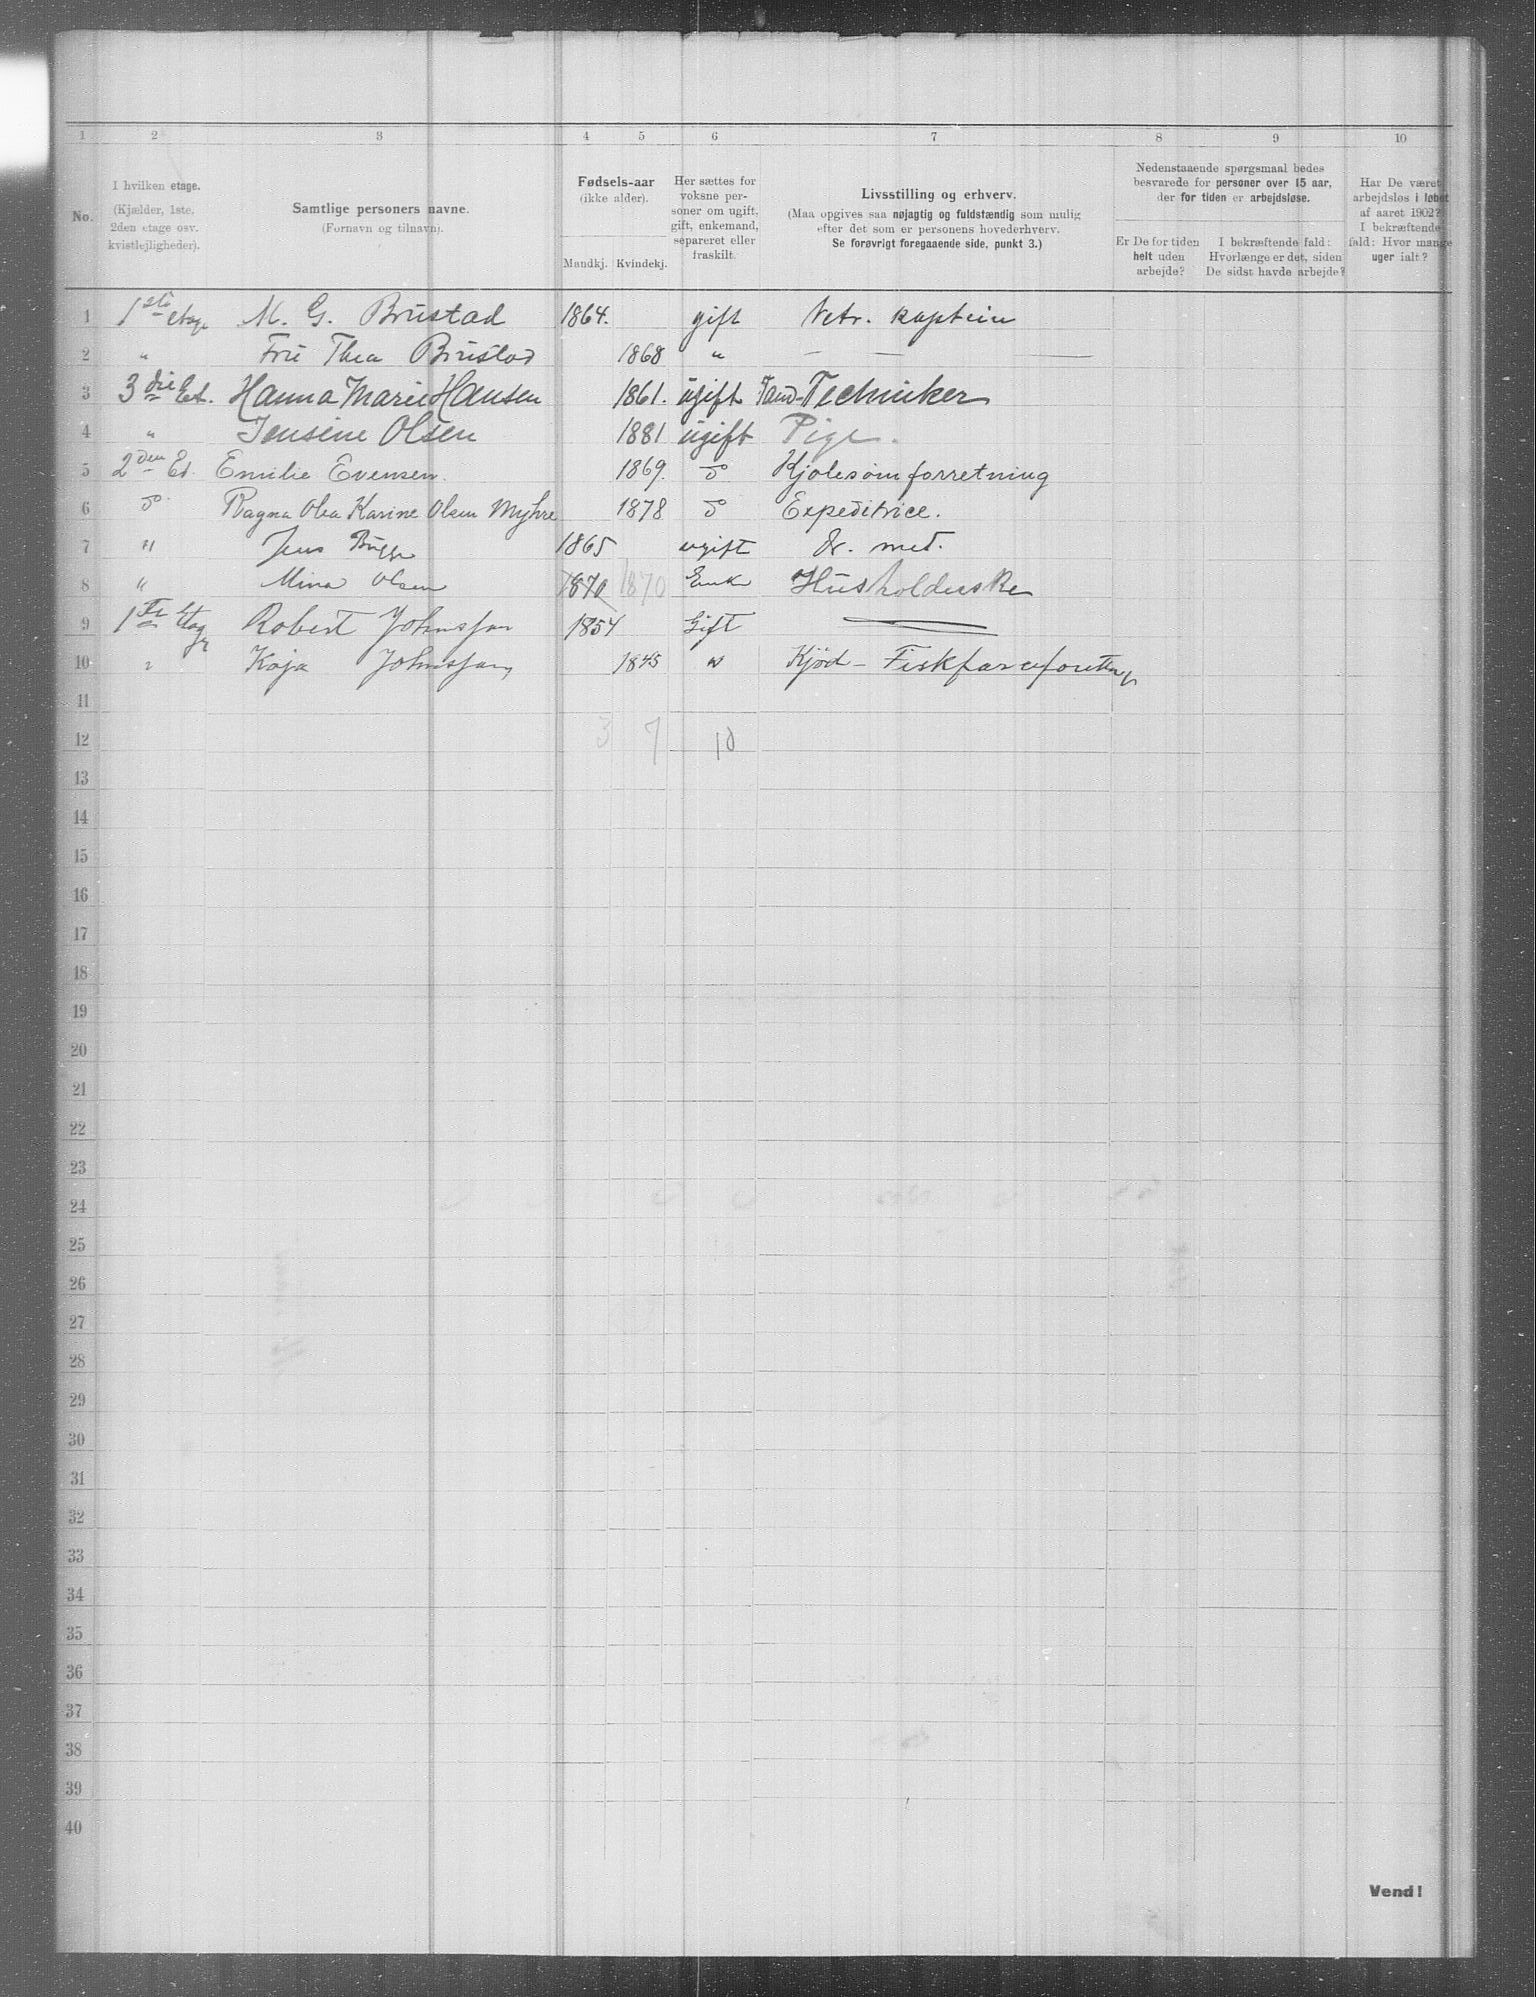 1 2 3 4 5 6 7 8 9 10
No.
I hvilken etage.
(Kjælder, 1ste.
2den etage osv.
kvistlejligheder).
Samtlige personers navne.
(Fornavn og tilnavn).
Fødsels-aar
(ikke alder).
Mandkj. Kvindekj.
Her sættes for
voksne per-
soner om ugift,
gift, enkemand,
separeret eller
fraskilt.
Livsstilling og erhverv.
(Maa opgives saa nøjagtig og fuldstændig som mulig
efter det som er personens hovederhverv.
Se forøvrigt foregaaende side, punkt 3.)
Nedenstaaende spørgsmaal bedes
besvarede for personer over 15 aar,
der for tiden er arbejdsløse.
Er De for tiden
helt uden
arbejde?
I bekræftende fald:
Hvorlænge er det, siden
De sidst havde arbejde?
Har De været
arbejdsløs i løbet
af aaret 1902?
I bekræftende
fald: Hvor mange
uger ialt?
1 1ste etage M. G. Brustad 1864. gift Vetr. kaptein
2 " Fru Thea Brustad 1868 " — — —
3 3die Et. Hanna Marie Hansen 1861. ugift Tand-Techniker
4 " Jensine Olsen 1881 ugift Pige.
5 2den Et. Emilie Evensen. 1869. do Kjolesømforretning
6 do Ragna Olea Karine Olsen Myhre 1878 do Expeditrice.
7 " Jens Bugge 1865 ugift dr. med.
8 " Mina Olsen 1870 1870 Enke Husholderske
9 1ste Etage Robert Johnssen 1854 Gift
10 " Kaja Johnssen 1845 " Kjød- Fiskfarceforetng
11
12 3 7 10
13
14
15
16
17
18
19
20
21
22
23
24
25
26
27
28
29
30
31
32
33
34
35
36
37
38
39
40
Vend!